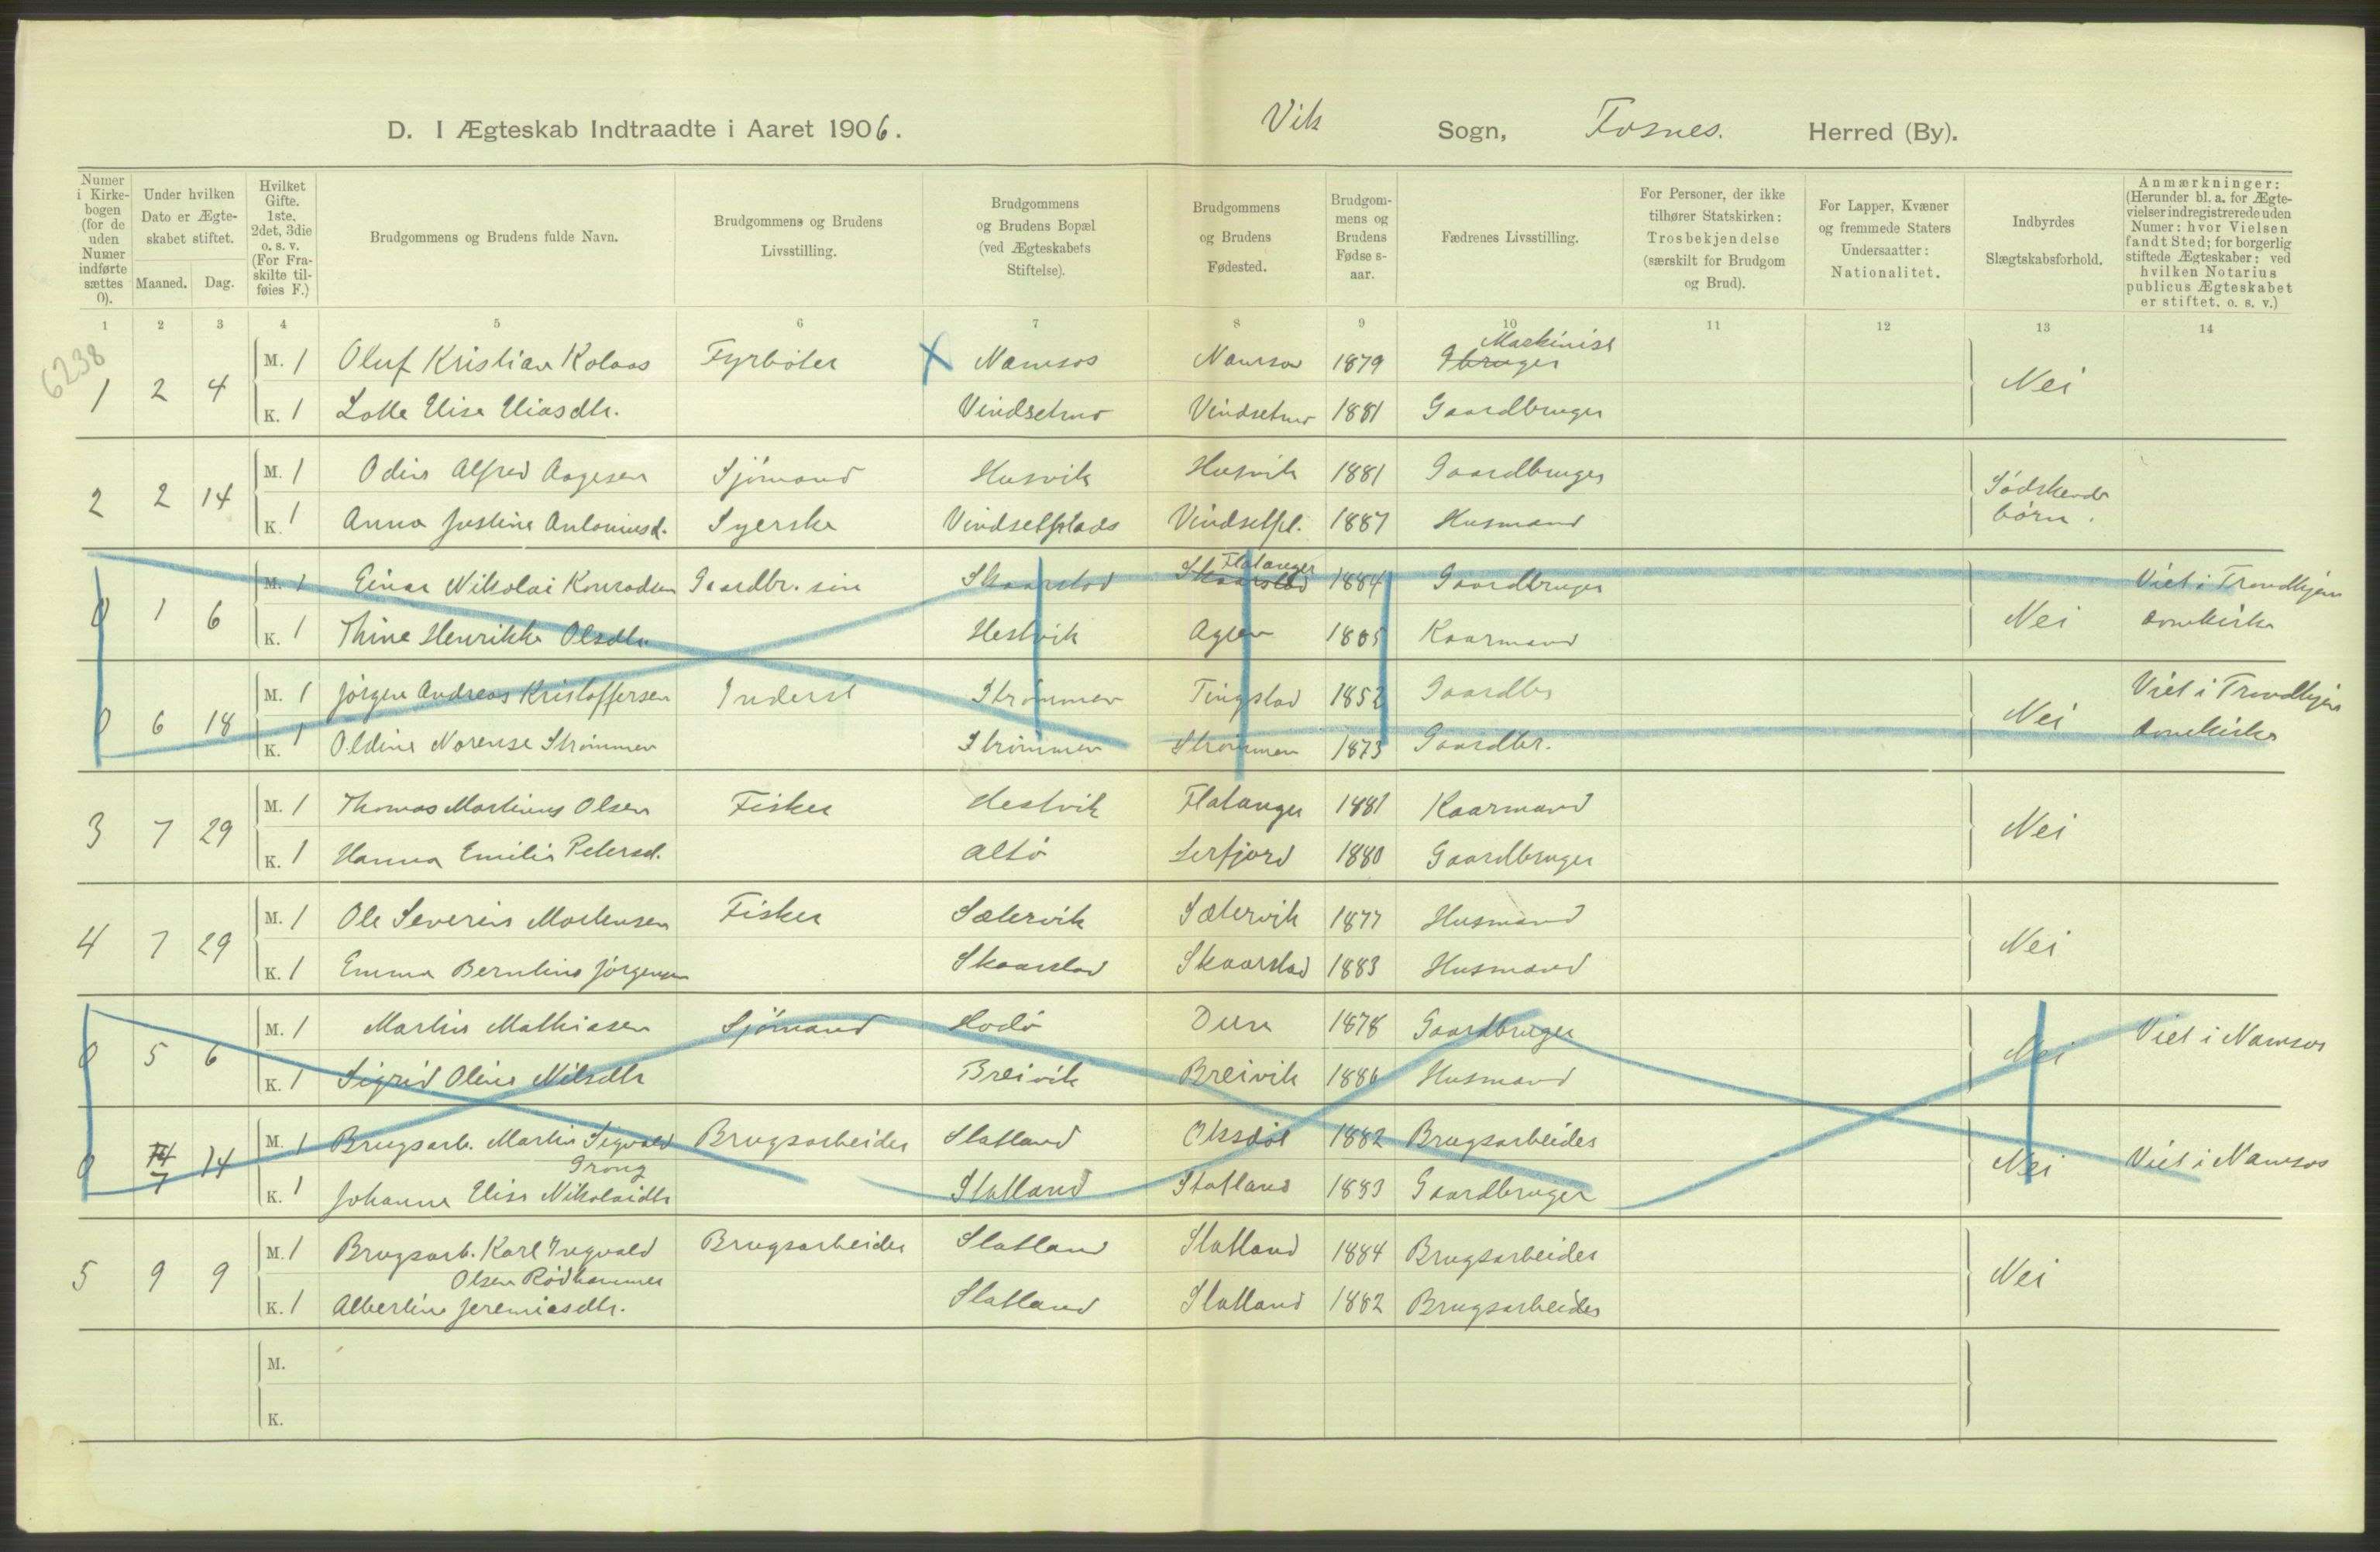 D. I Ægteskab Indtraadte i Aaret 1906. Vik Sogn, Fosnes. Herred (By).
Numer i Kirke-bogen (for de uden Numer indførte sættes 0).
Under hvilken Dato er Ægte-skabet stiftet.
Maaned. Dag.
Hvilket Gifte. 1ste, 2det, 3die o. s. v. (For Fra-skilte til-føies F.)
Brudgommens og Brudens fulde Navn.
Brudgommens og Brudens Livsstilling.
Brudgommens og Brudens Bopæl (ved Ægteskabets Stiftelse).
Brudgommens og Brudens Fødested.
Brudgom-mens og Brudens Fødse s-aar.
Fædrenes Livsstilling.
For Personer, der ikke tilhører Statskirken: Trosbekjendelse (særskilt for Brudgom og Brud).
For Lapper, Kvæner og fremmede Staters Undersaatter: Nationalitet.
Indbyrdes Slægtskabsforhold.
Anmærkninger: (Herunder bl. a. for Ægte-vielser indregistrerede uden Numer: hvor Vielsen fandt Sted; for borgerlig stiftede Ægteskaber: ved hvilken Notarius publicus Ægteskabet er stiftet. o. s. v.)
1 2 3 4 5 6 7 8 9 10 11 12 13 14
6238
Maskinist
1 2 4 M. 1 Oluf Kristian Kolaas Fyrbøter X Namsos Namsos 1879 Gbruger Nei
K. 1 Lotte Elise Eliasdtr. Vindsetmo Vindsetmo 1881 Gaardbruger
2 2 14 M. 1 Odin Alfred Aagesen Sjømand Husvik Husvik 1881 Gaardbruger Södskende
K. 1 Anna Justine Antoniusd. Syerske Vindsetplads Vindsetpl. 1887 Husmand børn.
Flatanger
0 1 6 M. 1 Einar Nikolai Konradsen Gaardbr. søn Skaarstad Skaarstad 1884 Gaardbruger Nei Viet i Trondhjem
K. 1 Thine Henrikke Olsdtr Hestvik Agsen 1885 Kaarmand domkirke
0 6 18 M. 1 Jørgen Andreas Kristoffersen Inderst Strømmen Tingstad 1852 Gaardbr Nei Viet i Trondhjem
K. 1 Oldine Norense Strømmen Strømmen Strømmen 1873 Gaardbr. domkirke
3 7 29 M. 1 Thomas Martinus Olsen Fisker Hestvik Flatanger 1881 Kaarmand Nei
K. 1 Hanna Emilie Petersd. Altø Serfjord 1880 Gaardbruger
4 7 29 M. 1 Ole Severin Mortensen Fisker Sætervik Sætervik 1877 Husmand Nei
K. 1 Emma Berntine Jørgensen Skaarstad Skaarstad 1883 Husmand
0 5 6 M. 1 Martin Mathiasen Sjømand Hodø Dun 1878 Gaardbruger Nei Viet i Namsos
K. 1 Sigrid Oline Nilsdtr Breivik Breivik 1886 Husmand
0 7 14 M. 1 Brugsarb. Martin Sigvald Brugsarbeider Statland 1882 Brugsarbeider Nei Viet i Namsos
Grong
K. 1 Johanna Elise Nikolaidtr Statland Statland 1883 Gaardbruger
5 9 9 M. 1 Brugsarb. Karl Ingvald Brugsarbeider Statland Statland 1884 Brugsarbeider Nei
Olsen Rødhammer
K. 1 Albertine Jeremiasdtr. Statland Statland 1882 Brugsarbeider
M.
K.